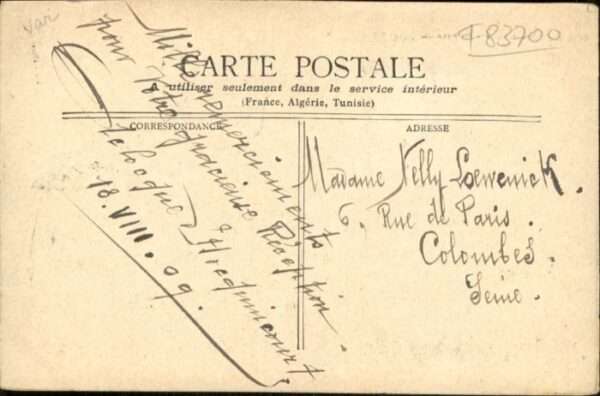 Var
F83700
CARTE POSTALE
utiliser seulement dans le service intérieur
(France, Algérie, Tunisie)
CORRESPONDANCE
ADRESSE
Mille remerciements
pour Votre gracieuse Réception.
18.VIII.09.
Madame Nelly Loewenick.
6, Rue de Paris.
Colombes.
Seine.